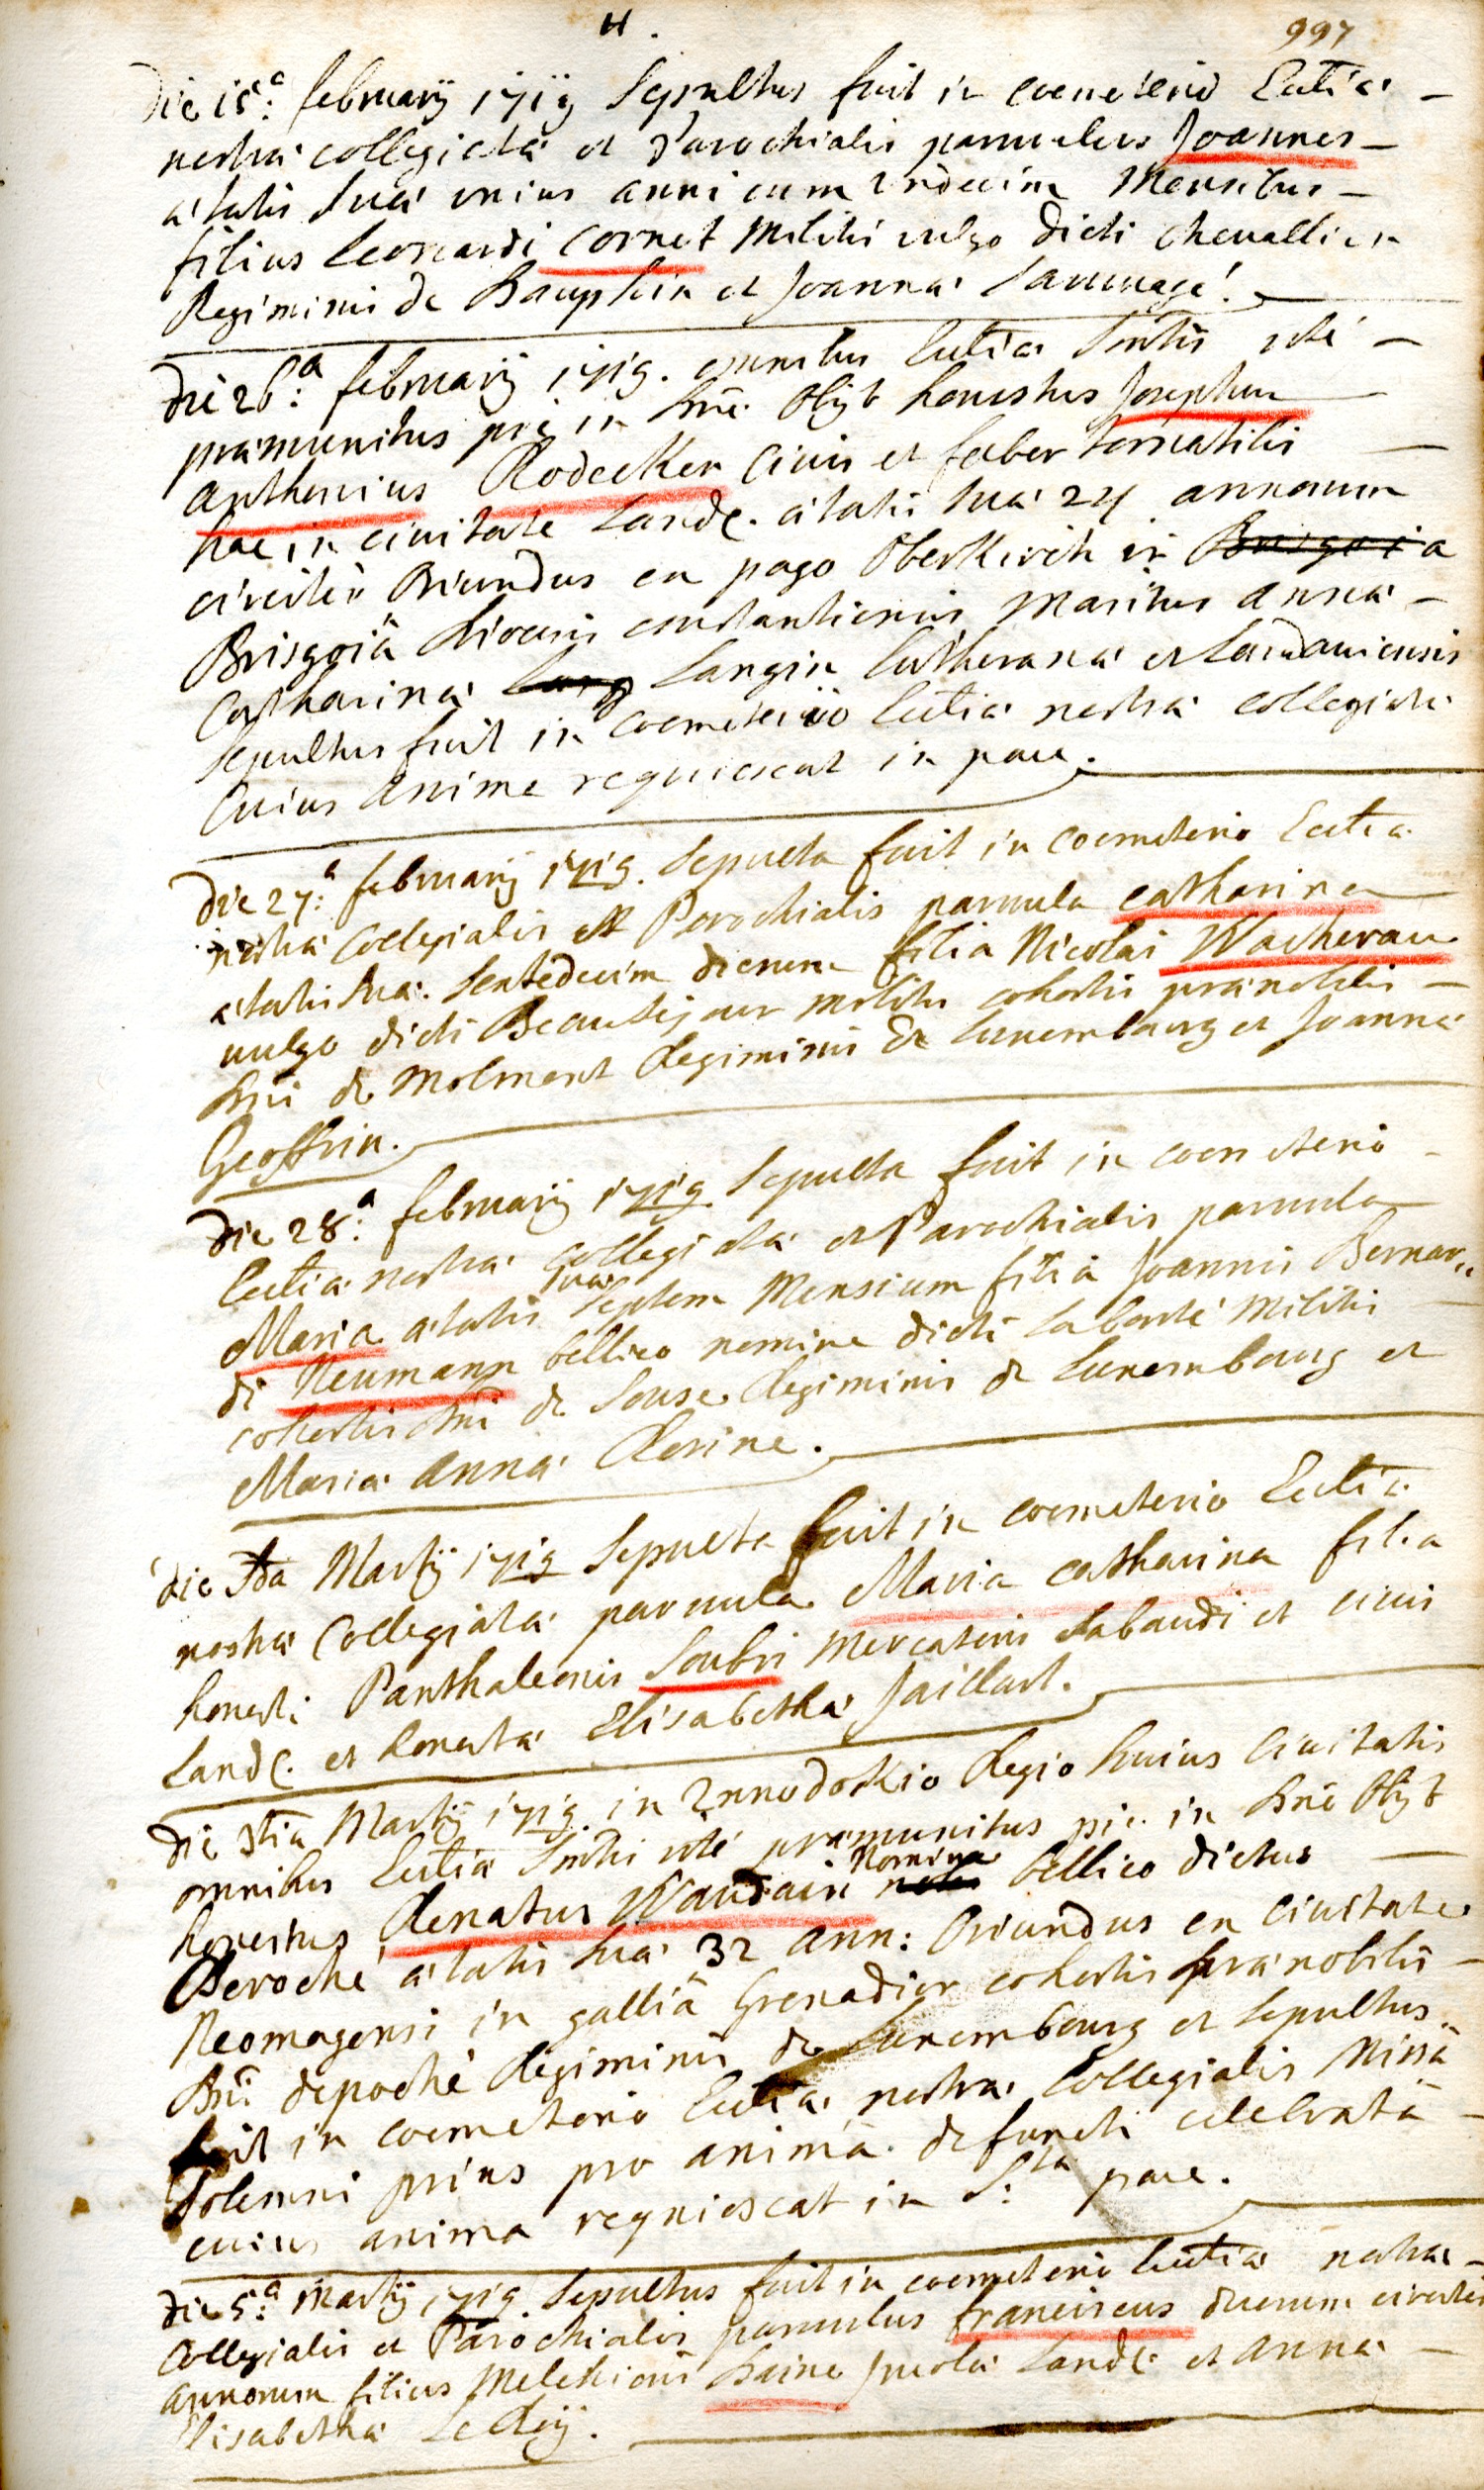 H.
997
Die 15ª: februarij 1719 Sepultus fuit in coemeterio Eccliæ
nostræ collegiatæ et Parochialis parvulus Joannes
ætatis suæ unius anni cum undecim Mensibus
filius Leonardi Cornet Militis vulgo dicti Chevallier
Regiminis de Dauphin et Joannæ Sauvage.
Die 26ª: februarij 1719. omnibus Eccliæ Sacntis rite
præmunitus pie in Dno Obijt honestus Josephus
Anthonius Rodecker Civis et faber
hac in civitate Land. ætatis suæ 24 annorum
circiter Oriundus ex pago Oberkirch in a
Brisgoiâ Diocesis constantiensis Maritus Annæ
Catharinæ Langin Lutheranæ et Landaviensis
Sepultus fuit in coemeterio Eccliæ nostræ collegiatæ
Cuius Anime requiescat in pace.
Die 27ª: februarij 1719. Sepulta fuit in coemeterio Eccliæ
nostræ Collegialis et Parochialis parvula Catharina
ætatis suæ. Sextedecim dierum filia Nicolai Wacherau
vulgo dicti Beausejour militis cohortis prænobilis
Dni de Molmont Regiminis De Luxembourg et Joannæ
Geoffrin.
Die 28ª: februarij 1719 Sepulta fuit in coemeterio
Eccliæ nostræ collegiatæ et Parochialis parvula
Maria ætatis suæ Septem Mensium filia Joannis Bernar„
di Neumann bellico nomine dicti Labonté Militis
cohortis Dni de Souse Regiminis de Luxembourg et
Mariæ Annæ Rosine.
die 3tia Martij 1719 Sepulta fuit in coemeterio Eccliæ
nostræ Collegiatæ parvula Maria Catharina filia
honesti Panthaleonis Soubri Mercatoris Sabaudi et civis
Land. et honestæ Elisabethæ Jaillart.
Die 3tia Martij 1719. in Xenodokio Regio huius Civitatis
omnibus Eccliæ Sacntis rite præmunitus pie in Dno Obijt
honestus Renatus Waudain Nomine bellico dictus
Deroché ætatis suæ 32 ann: Oriundus ex Civitate
Neomagensi in galliâ Grenadier cohortis prænobilis
Dni depoché Regiminis de Luxembourg et Sepultus
fuit in coemeterio Eccliæ nostræ Collegialis Missâ
Solemni prius pro animâ defuncti celebratâ
cuius anima requiescat in S:ta pace.
Die 5ª: Martij 1719. Sepultus fuit in coemeterio Eccliæ nostræ
Collegialis et Parochialis parvulus franciscus duorum circiter
annorum filius Melchioris Haine Incolæ Land. et Annæ
Elisabethæ Le Roij.